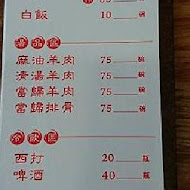 白飯 10 碗
湯品區
麻油羊肉 75 碗
清湯羊肉 75 碗
當歸羊肉 75 碗
當歸排骨 75 碗
冷飲區
西打 20 瓶
啤酒 40 瓶